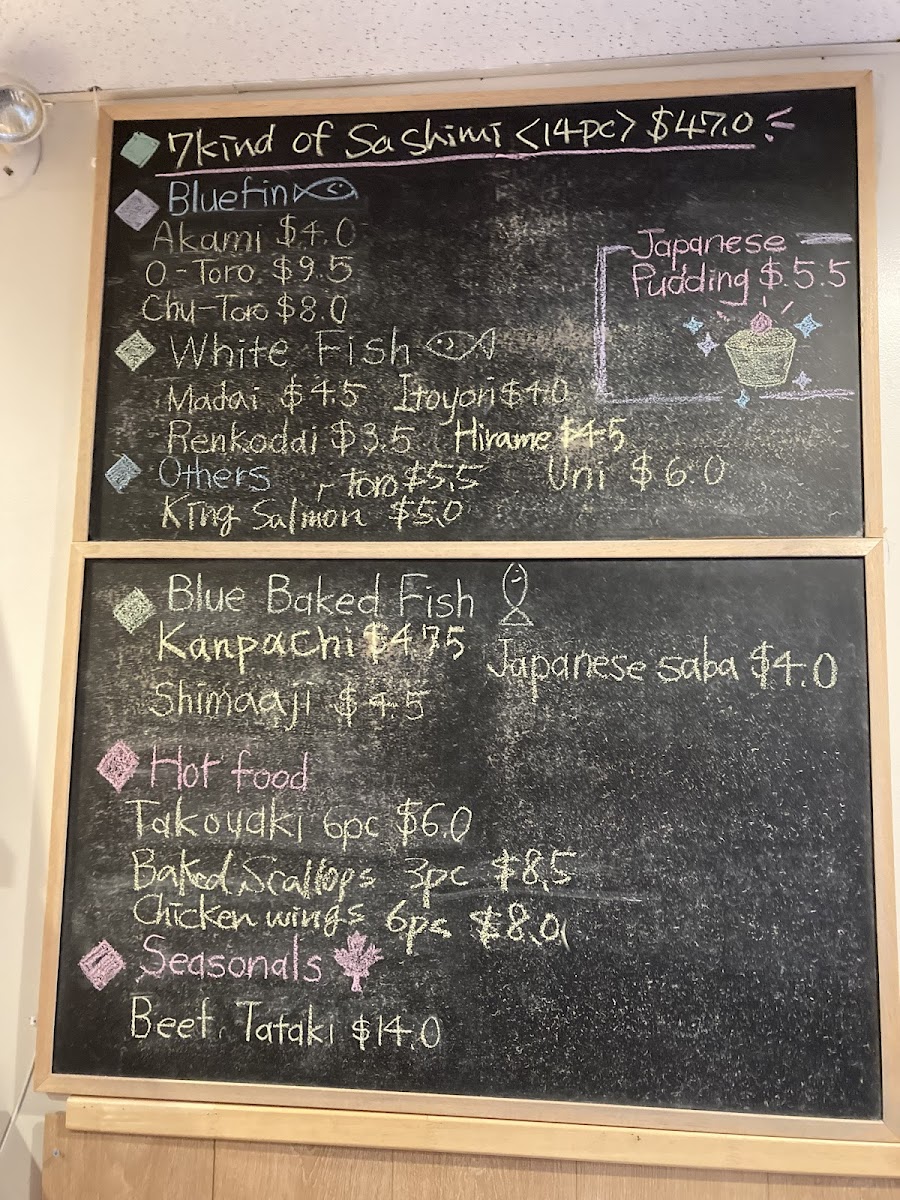 7kind of Sashimi <14pc> $47.0
Bluefin
Akami $4.0
O-Toro $9.5
Chu-Toro $8.0
Japanese
Pudding $5.5
White Fish
Madai $4.5 Itoyori $4.0
Renkodai $3.5 Hirame $4.5
Others , Toro $5.5 Uni $6.0
King Salmon $5.0
Blue Baked Fish
Kanpachi $4.75
Japanese saba $4.0
Shimaaji $4.5
Hot food
Takoyaki 6pc $6.0
Baked Scallops 3pc $8.5
Chicken wings 6pc $8.0
Seasonals
Beef Tataki $14.0